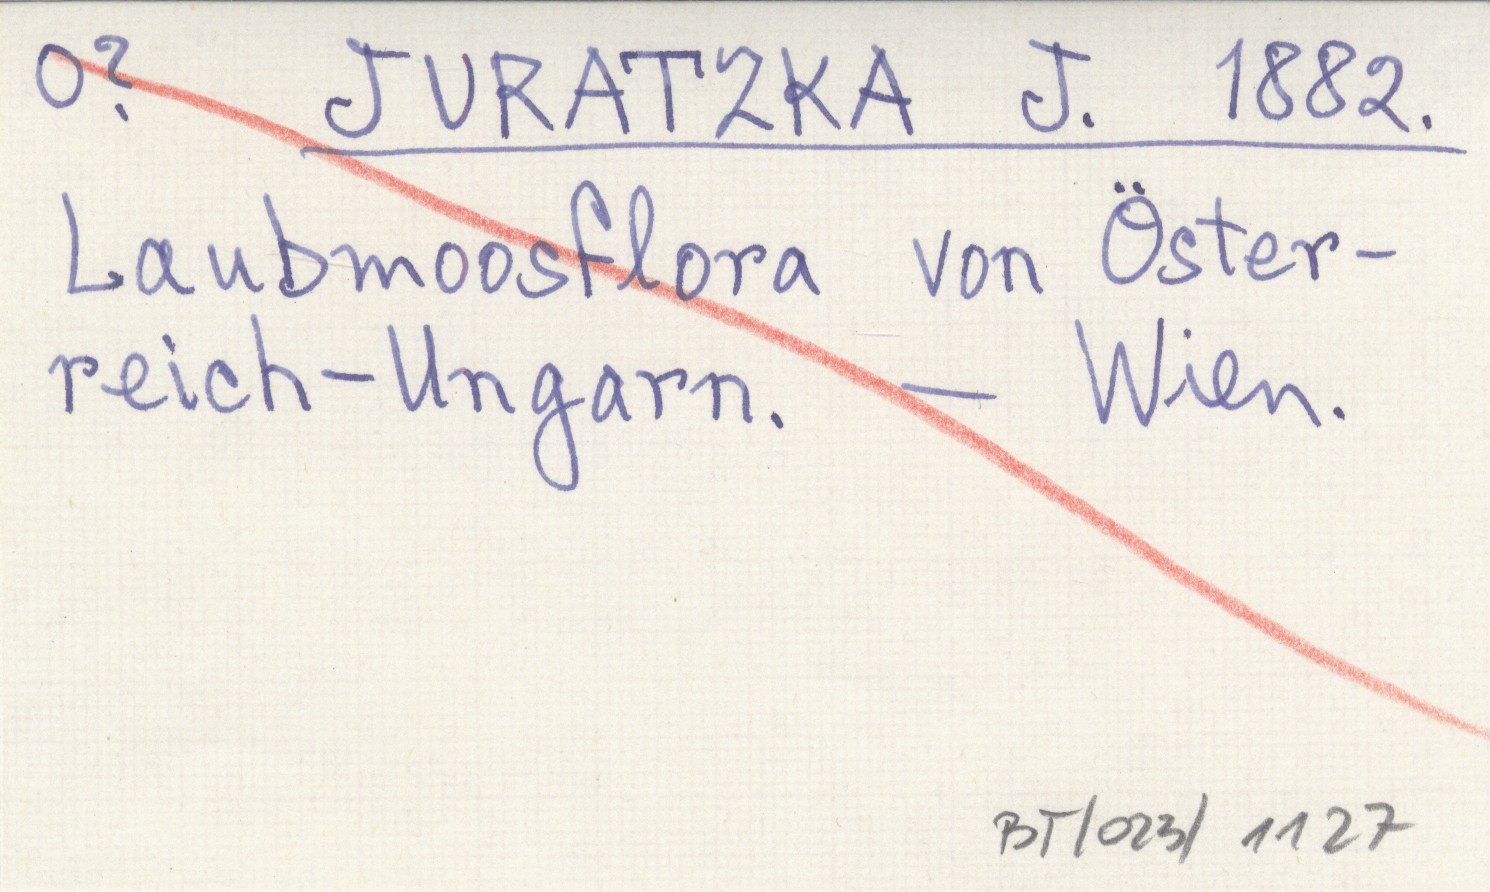 O? JURATZKA J. 1882.
Laubmoosflora von Öster-
reich-Ungarn. — Wien.
BT/023/ 1127